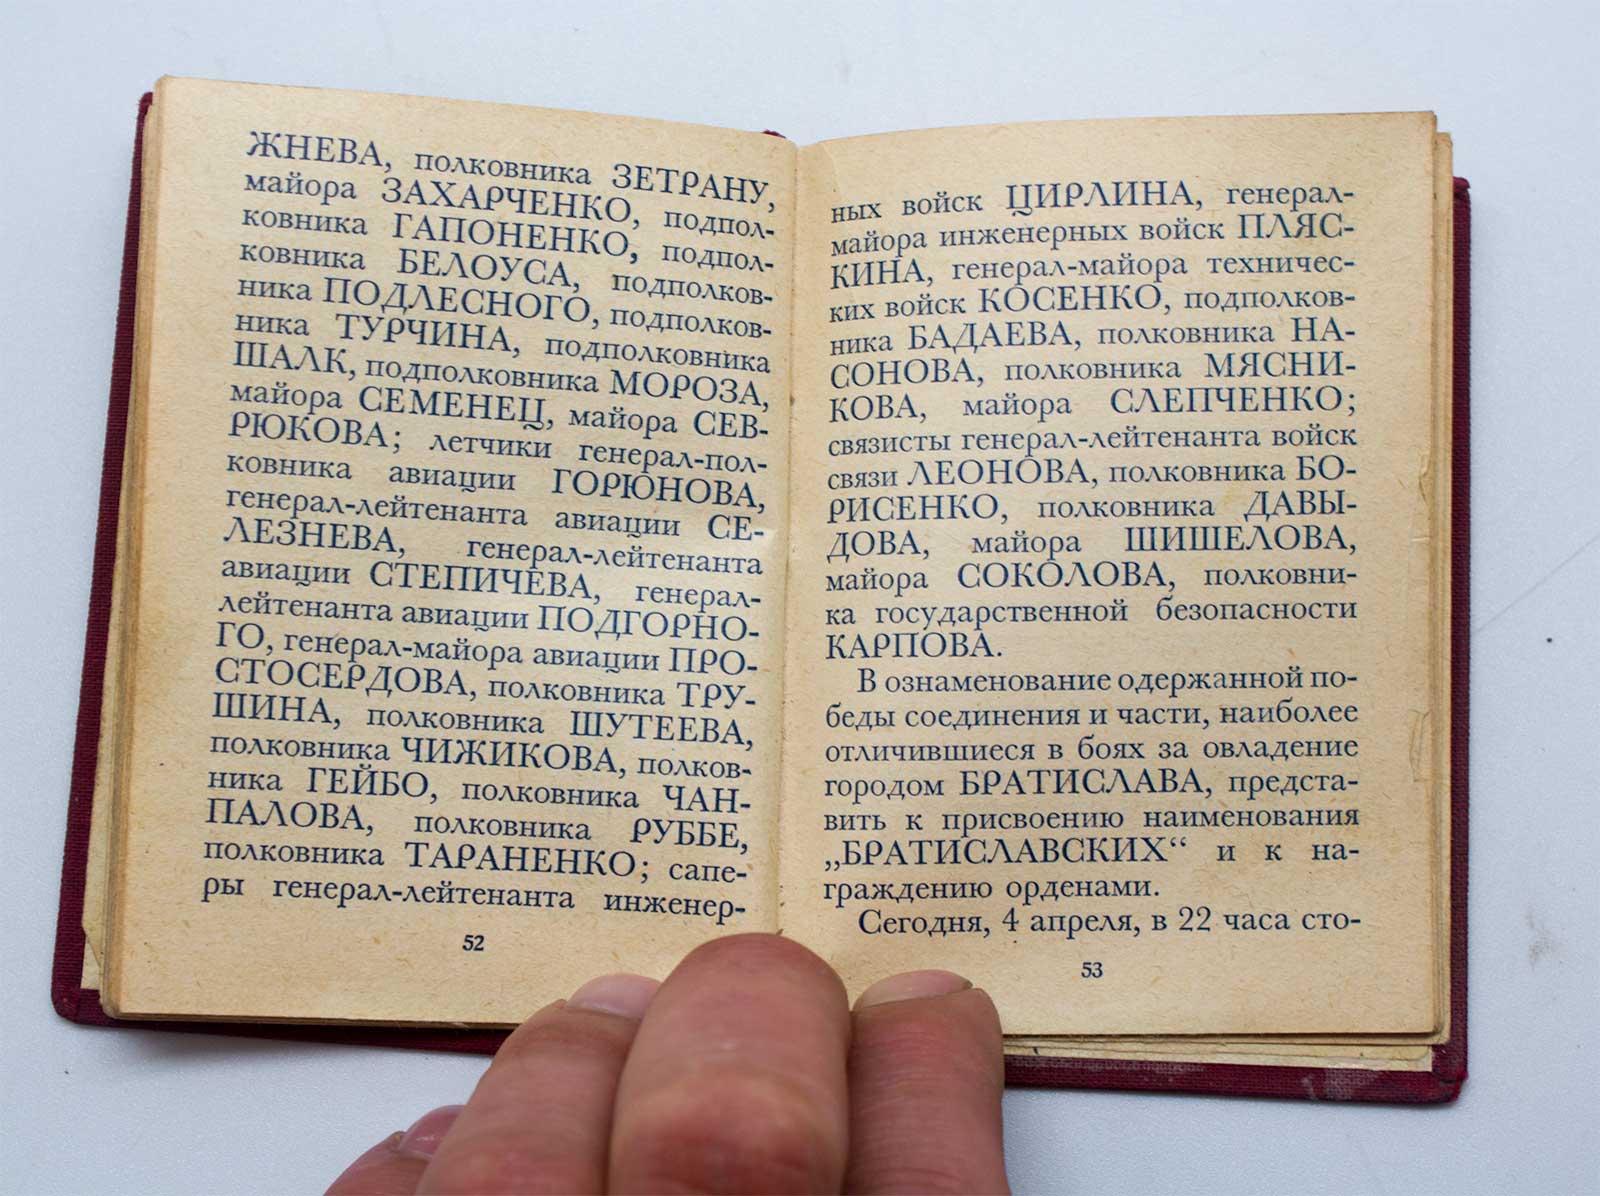 ЖНЕВА, полковника ЗЕТРАНУ,
майора ЗАХАРЧЕНКО, подпол-
ковника ГАПОНЕНКО, подпол-
ковника БЕЛОУСА, подполков-
ника ПОДЛЕСНОГО, подполков-
ника ТУРЧИНА, подполковника
ШАЛК, подполковника МОРОЗА,
майора СЕМЕНЕЦ, майора СЕВ-
РЮКОВА; летчики генерал-пол-
ковника авиации ГОРЮНОВА,
генерал-лейтенанта авиации СЕ-
ЛЕЗНЕВА, генерал-лейтенанта
авиации СТЕПИЧЕВА, генерал-
лейтенанта авиации ПОДГОРНО-
ГО, генерал-майора авиации ПРО-
СТОСЕРДОВА, полковника ТРУ-
ШИНА, полковника ШУТЕЕВА,
полковника ЧИЖИКОВА, полков-
ника ГЕЙБО, полковника ЧАН-
ПАЛОВА, полковника РУББЕ,
полковника ТАРАНЕНКО; сапе-
ры генерал-лейтенанта инженер-
52
ных войск ЦИРЛИНА, генерал-
майора инженерных войск ПЛЯС-
КИНА, генерал-майора техничес-
ких войск КОСЕНКО, подполков-
ника БАДАЕВА, полковника НА-
СОНОВА, полковника МЯСНИ-
КОВА, майора СЛЕПЧЕНКО;
связисты генерал-лейтенанта войск
связи ЛЕОНОВА, полковника БО-
РИСЕНКО, полковника ДАВЫ-
ДОВА, майора ШИШЕЛОВА,
майора СОКОЛОВА, полковни-
ка государственной безопасности
КАРПОВА.
В ознаменование одержанной по-
беды соединения и части, наиболее
отличившиеся в боях за овладение
городом БРАТИСЛАВА, предста-
вить к присвоению наименования
„БРАТИСЛАВСКИХ“ и к на-
граждению орденами.
Сегодня, 4 апреля, в 22 часа сто-
53